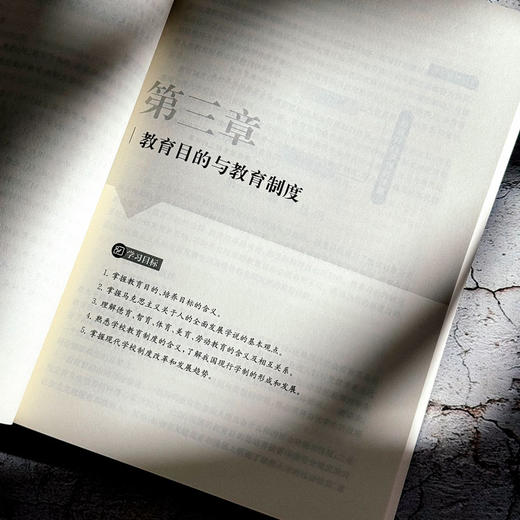 第三章
教育目的与教育制度
学习目标
1. 掌握教育目的、培养目标的含义。
2. 掌握马克思主义关于人的全面发展学说的基本观点。
3. 理解德育、智育、体育、美育、劳动教育的含义及相互关系。
4. 熟悉学校教育制度的含义，了解我国现行学制的形成和发展。
5. 掌握现代学校制度改革和发展趋势。